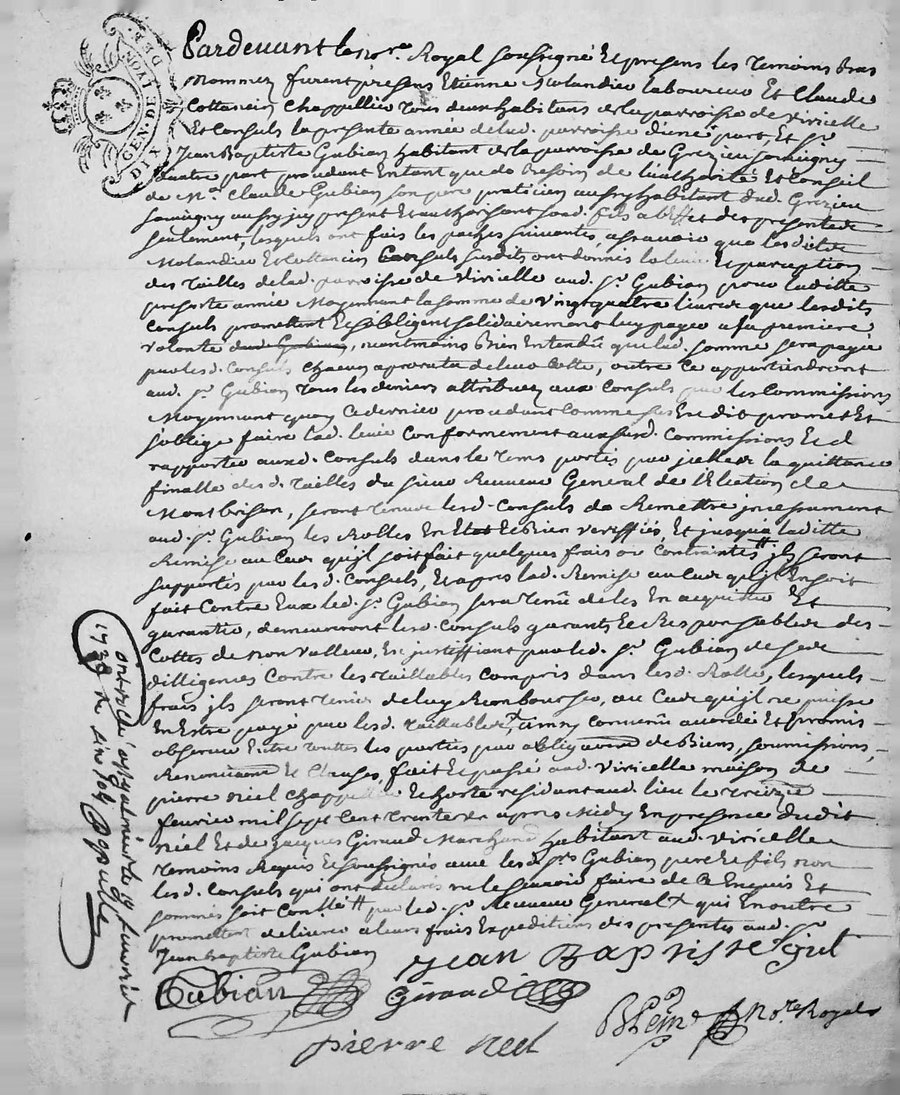 GEN. DE LYON
DIX DER
Pardevant le no.re Royal soussigné Et presens les Temoins bas
Nommez furent presens Etienne Molandieu laboureur Et Claude
Cottancin, Chappellier Tous deux habitans de la parroisse de Viricelle
Et Consuls la presente année de lad. parroisse d'une part, Et S.r
Jean Baptiste Gubian habitant de la parroisse de Grezieu
d'autre part procedant Entant que de besoin de l'authorité Et Conseil
de M.e Claude Gubian son père praticien aussy habitant dud. Grezieu
aussy icy present Et authorisant sond. fils a l'effet des presentes
seulement, lesquels ont fait les pactes suivantes, a sçavoir que lesdits
Molandieu Et Cottancin Consuls susdits ont donnés la levée Et perception
des Tailles de lad. parroisse de Viricelle aud. S.r Gubian pour laditte
presente année Moyennant la somme de vingt quatre livres que lesdits
Consuls promettent Et s'obligent solidairement luy payer a sa premiere
volonté dud. Gubian, neantmoins bien Entendû que lad. somme sera payée
par lesd. Consuls chacun a prorata de leur Cotte, outre ce appartiendront
aud. S.r Gubian Tous les deniers attribuez aux Consuls par les Commissions
Moyennant quoy Ce dernier procedant comme promet Et
s'oblige faire lad. levée conformement aux susd. Commissions Et d
rapporter auxd. Consuls dans le Tems portés par icelles la quittance
finalle desd. Tailles du sieur Receveur General de l'Election de
Montbrison, seront Tenus lesd. Consuls de Remettre incessament
aud. S.r Gubian les Rolles En Etat Et bien veriffiés, Et jusqu'a laditte
Remise au Cas qu'jl soit fait quelques frais ou Contraintes jls seront
supportés par lesd. Consuls, Et apres lad. Remise au cas qu'jl En soit
fait Contre Eux led. S.r Gubian sera Tenû de les En acquitter Et
garantir, demeureront lesd. Consuls garants Et Responsables des
Cottes de non valleur, En justiffiant par led. S.r Gubian de ses
dilligences Contre les Taillables compris dans lesd. Rolles, lesquels
frais jls seront Tenus de luy Rembourser, au Cas qu'jl ne puisse
En Estre payé par lesd. Taillables, ainsy convenû accordé Et promis
observer Entre Touttes les parties par obligations de biens, soumissions,
Renonciations Et Clauses, fait Et passé aud. Viricelle maison de
pierre Niel Chappellier Et hoste residant aud. lieu le treizie
fevrier mil sept Cent Trente apres Midy En presence dudit
Niel Et de Jacques Giraud Marchand habitant aud. Viricelle
Temoins Requis Et soussignés avec lesd. S.rs Gubian pere Et fils non
lesd. Consuls qui ont declarés ne le sçavoir faire de Ce Enquis Et
sommés soit Con.llé par led. S.r Receveur General qui En outre
promettent delivrer a leurs frais Expeditions des presentes aud. S.r
Jean Baptiste Gubian
Jean Baptiste
Gubian
Giraud
pierre niel
no.re Royal
fevrier